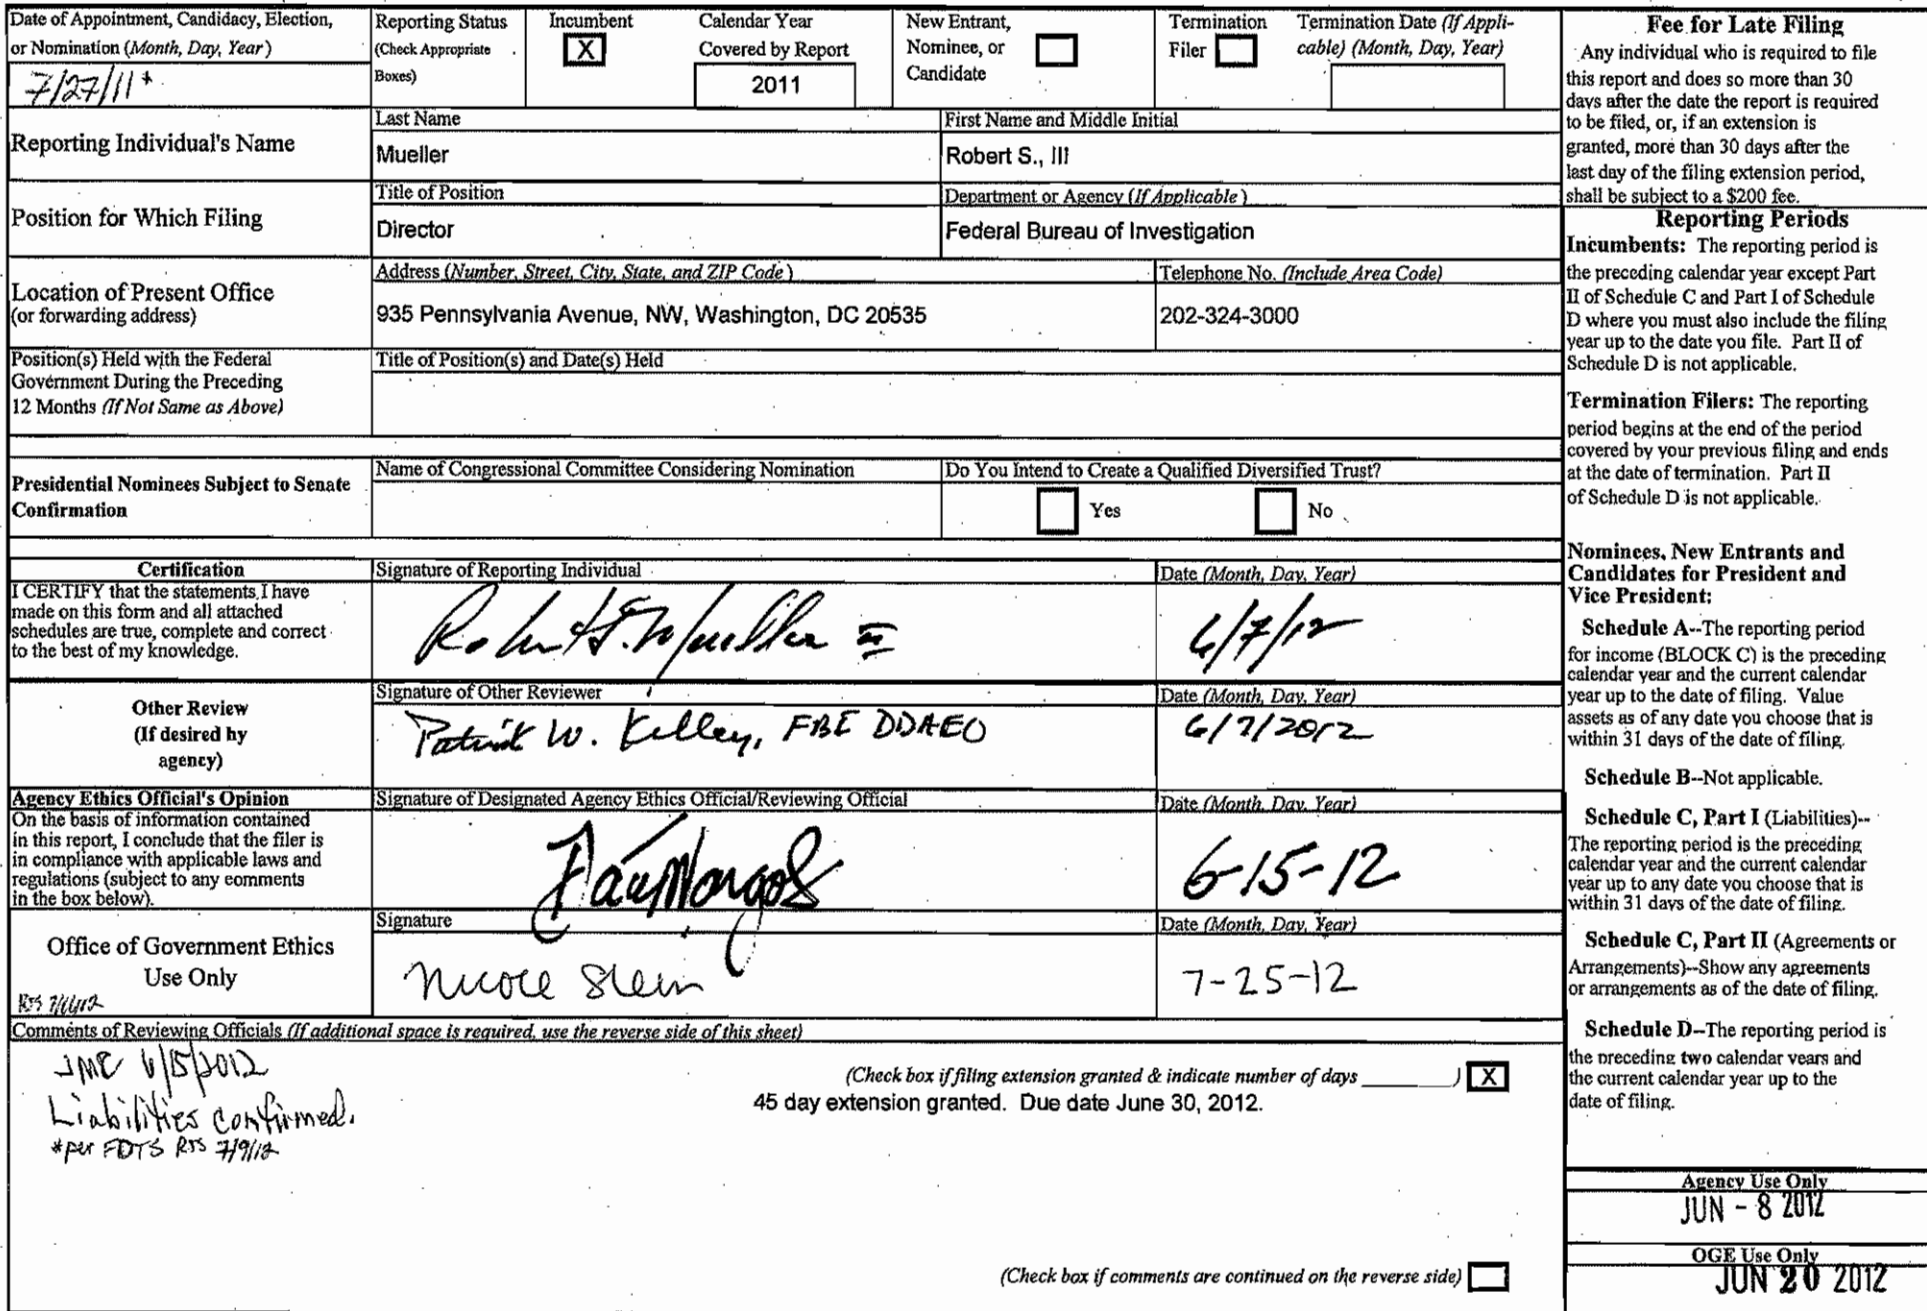 Date of Appointment, Candidacy, Election,
or Nomination (Month, Day, Year)
7/27/11*
Reporting Status
(Check Appropriate
Boxes)
Incumbent
X
Calendar Year
Covered by Report
2011
New Entrant,
Nominee, or
Candidate
Termination
Filer
Termination Date (If Appli-
cable) (Month, Day, Year)
Reporting Individual's Name
Last Name
Mueller
First Name and Middle Initial
Robert S., III
Position for Which Filing
Title of Position
Director
Department or Agency (If Applicable)
Federal Bureau of Investigation
Location of Present Office
(or forwarding address)
Address (Number, Street, City, State, and ZIP Code)
935 Pennsylvania Avenue, NW, Washington, DC 20535
Telephone No. (Include Area Code)
202-324-3000
Position(s) Held with the Federal
Government During the Preceding
12 Months (If Not Same as Above)
Title of Position(s) and Date(s) Held
Presidential Nominees Subject to Senate
Confirmation
Name of Congressional Committee Considering Nomination
Do You Intend to Create a Qualified Diversified Trust?
Yes
No
Certification
I CERTIFY that the statements I have
made on this form and all attached
schedules are true, complete and correct
to the best of my knowledge.
Signature of Reporting Individual
Robert S. Mueller III
Date (Month, Day, Year)
6/7/12
Other Review
(If desired by
agency)
Signature of Other Reviewer
Patrick W. Kelley, FBI DDAEO
Date (Month, Day, Year)
6/7/2012
Agency Ethics Official's Opinion
On the basis of information contained
in this report, I conclude that the filer is
in compliance with applicable laws and
regulations (subject to any comments
in the box below).
Signature of Designated Agency Ethics Official/Reviewing Official
Date (Month, Day, Year)
6-15-12
Office of Government Ethics
Use Only
Signature
Nicole Stein
Date (Month, Day, Year)
7-25-12
Comments of Reviewing Officials (If additional space is required, use the reverse side of this sheet)
JME 6/15/2012
Liabilities confirmed.
*per FDTS RJS 7/9/12
(Check box if filing extension granted & indicate number of days ________) X
45 day extension granted. Due date June 30, 2012.
(Check box if comments are continued on the reverse side)
Fee for Late Filing
Any individual who is required to file
this report and does so more than 30
days after the date the report is required
to be filed, or, if an extension is
granted, more than 30 days after the
last day of the filing extension period,
shall be subject to a $200 fee.
Reporting Periods
Incumbents: The reporting period is
the preceding calendar year except Part
II of Schedule C and Part I of Schedule
D where you must also include the filing
year up to the date you file. Part II of
Schedule D is not applicable.
Termination Filers: The reporting
period begins at the end of the period
covered by your previous filing and ends
at the date of termination. Part II
of Schedule D is not applicable.
Nominees, New Entrants and
Candidates for President and
Vice President:
Schedule A--The reporting period
for income (BLOCK C) is the preceding
calendar year and the current calendar
year up to the date of filing. Value
assets as of any date you choose that is
within 31 days of the date of filing.
Schedule B--Not applicable.
Schedule C, Part I (Liabilities)--
The reporting period is the preceding
calendar year and the current calendar
year up to any date you choose that is
within 31 days of the date of filing.
Schedule C, Part II (Agreements or
Arrangements)--Show any agreements
or arrangements as of the date of filing.
Schedule D--The reporting period is
the preceding two calendar years and
the current calendar year up to the
date of filing.
Agency Use Only
JUN - 8 2012
OGE Use Only
JUN 20 2012